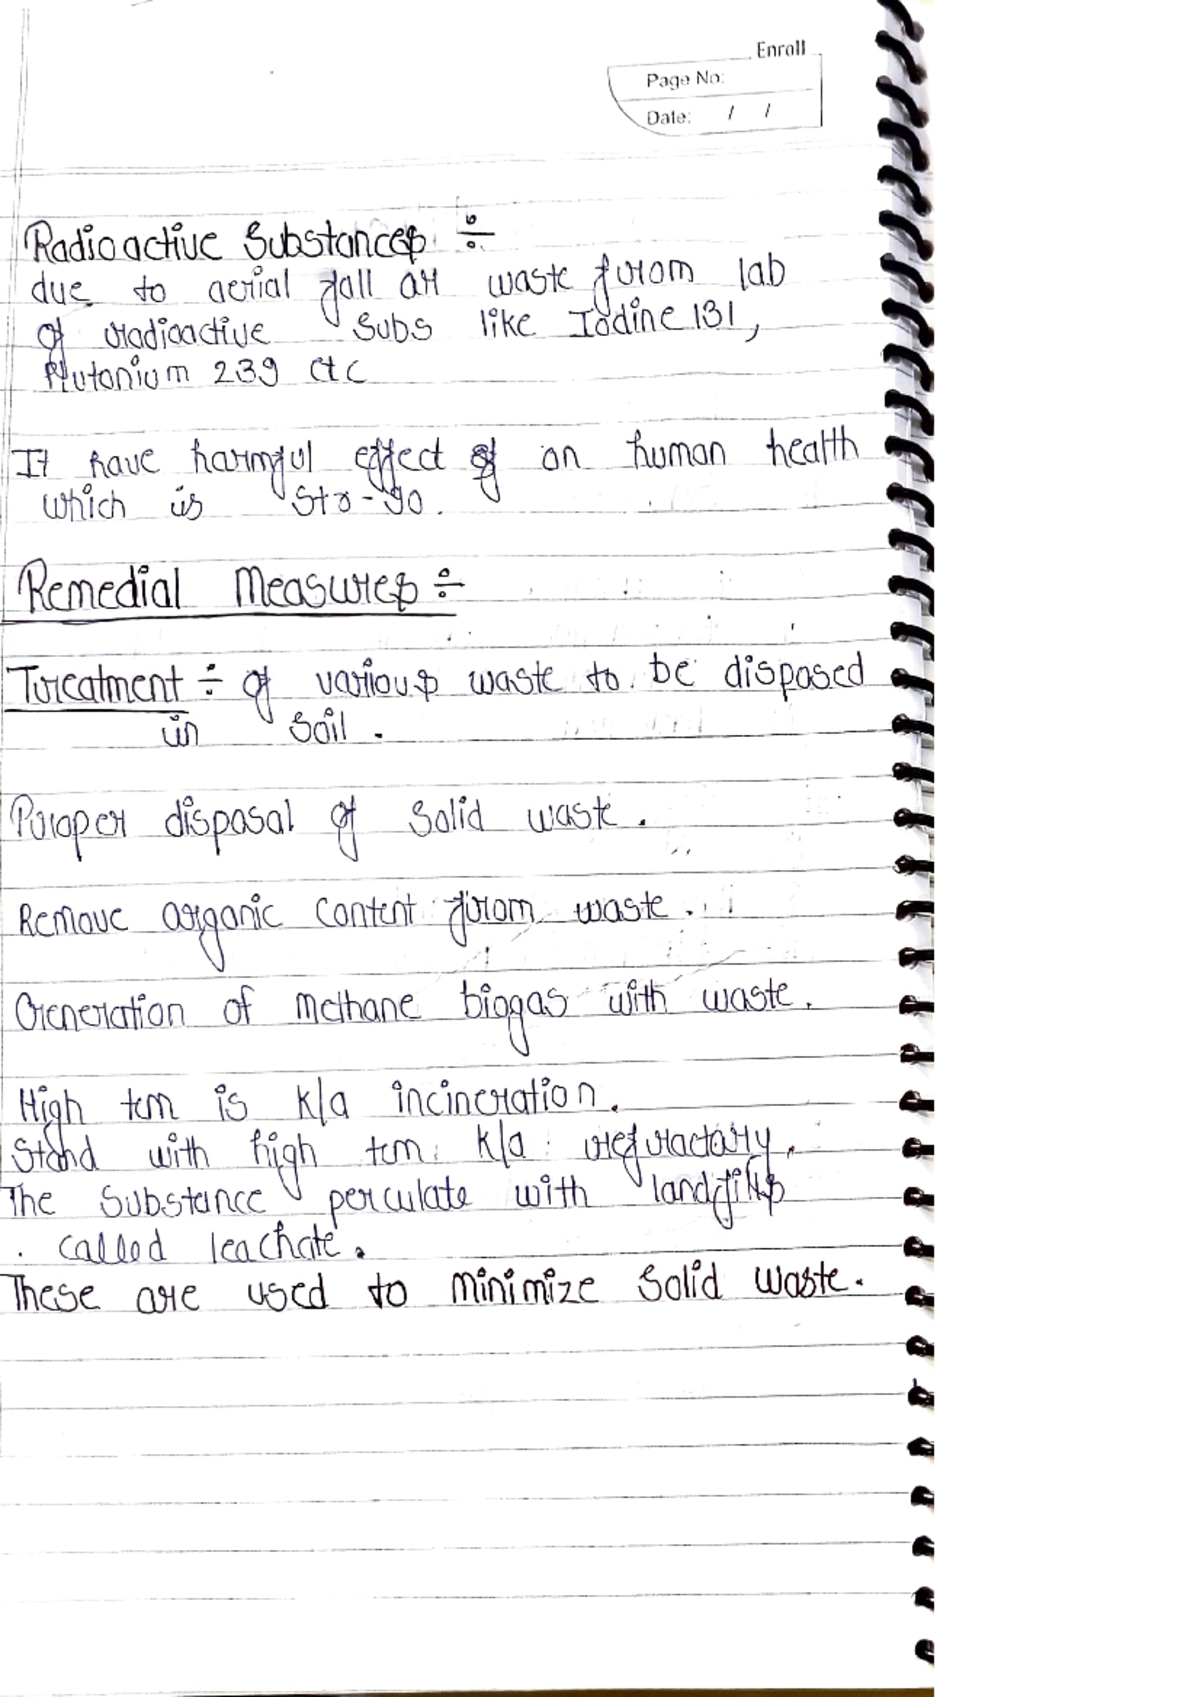 Enroll
Page No:
Date: / /
Radioactive Substances ÷
due to aerial fall or waste from lab
of radioactive subs like Iodine 131,
Plutonium 239 etc
It have harmful effect of on human health
which is Str-90.
Remedial Measures ÷
Treatment ÷ of various waste to be disposed
in soil.
Proper disposal of solid waste.
Remove organic content from waste.
Generation of methane biogas with waste.
High tem is k/a incineration.
Stand with high tem k/a refractary.
The substance perculate with landfills
called leachate.
These are used to minimize solid waste.